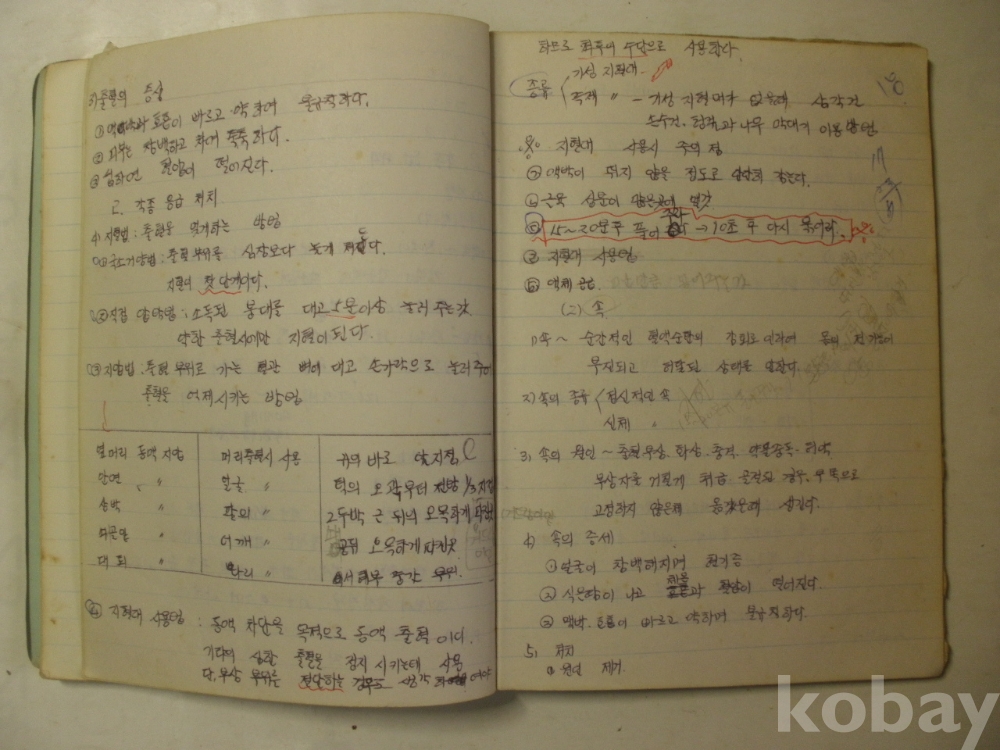 3) 출혈의 증상
① 맥박과 호흡이 빠르고 약하며 불규칙하다.
② 피부는 창백하고 차며 축축하다.
③ 심하면 혈압이 떨어진다.
2. 각종 응급 처치
4) 지혈법 : 출혈을 멎게하는 방법
: 출혈부위를 심장보다 높게 한다.
지혈의 첫 단계이다.
② 직접 압박법 : 소독된 붕대를 대고 5분이상 눌러 주는것
약한 출혈시에만 지혈이 된다.
③ 지압법 : 출혈 부위로 가는 혈관 뼈에 대고 손가락으로 눌러주어
출혈을 억제시키는 방법
옆머리 동맥 지압 머리출혈시 사용 귀의 바로 앞지점
안면 〃 얼굴 〃 턱의 오관부터 전방 1/3 지점
상박 〃 팔의 〃 2두박근 뒤의 오목하게
쇄골밑 어깨 〃 오목하게 파진곳
대퇴 다리 〃 중간 부위.
④ 지혈대 사용법 : 동맥 차단을 목적으로 동맥 출혈이다.
기타의 심한 출혈을 정지 시키는데 사용
단, 부상 부위를 절단하는 경우도 생각
하므로 최후의 수단으로 사용한다.
종류 기성 지혈대.
즉석 〃 - 기성 지혈대가 없을때 삼각건
손수건, 헝겊과 나무 막대기 이용 방법.
지혈대 사용시 주의 점
② 맥박이 뛰지 않을 정도로 단단히 감는다.
④ 근육 신문이 많은곳에 감
⑤ 15~20분후 풀어 준다 → 10초 후 다시 묶어라.
지혈대 사용법
액체 공급
(2) 속
1) 속 ~ 순간적인 혈액순환의 감퇴로 인하여 몸의 전 기능이
부진되고 허탈된 상태를 말한다.
2) 속의 종류 정신적인 속
신체 〃
3) 속의 원인 ~ 출혈, 부상, 화상, 충격, 약물중독, 허약
부상자를 거칠게 취급 골절된 경우, 부목으로
고정하지 않은채 옮겼을때 생긴다.
4) 속의 증세
① 얼굴이 창백해지며 현기증
② 식은땀이 나고 체온과 혈압이 떨어진다.
③ 맥박, 호흡이 빠르고 약하며 불규칙하다.
5) 처치
① 원인 제거.
kobay